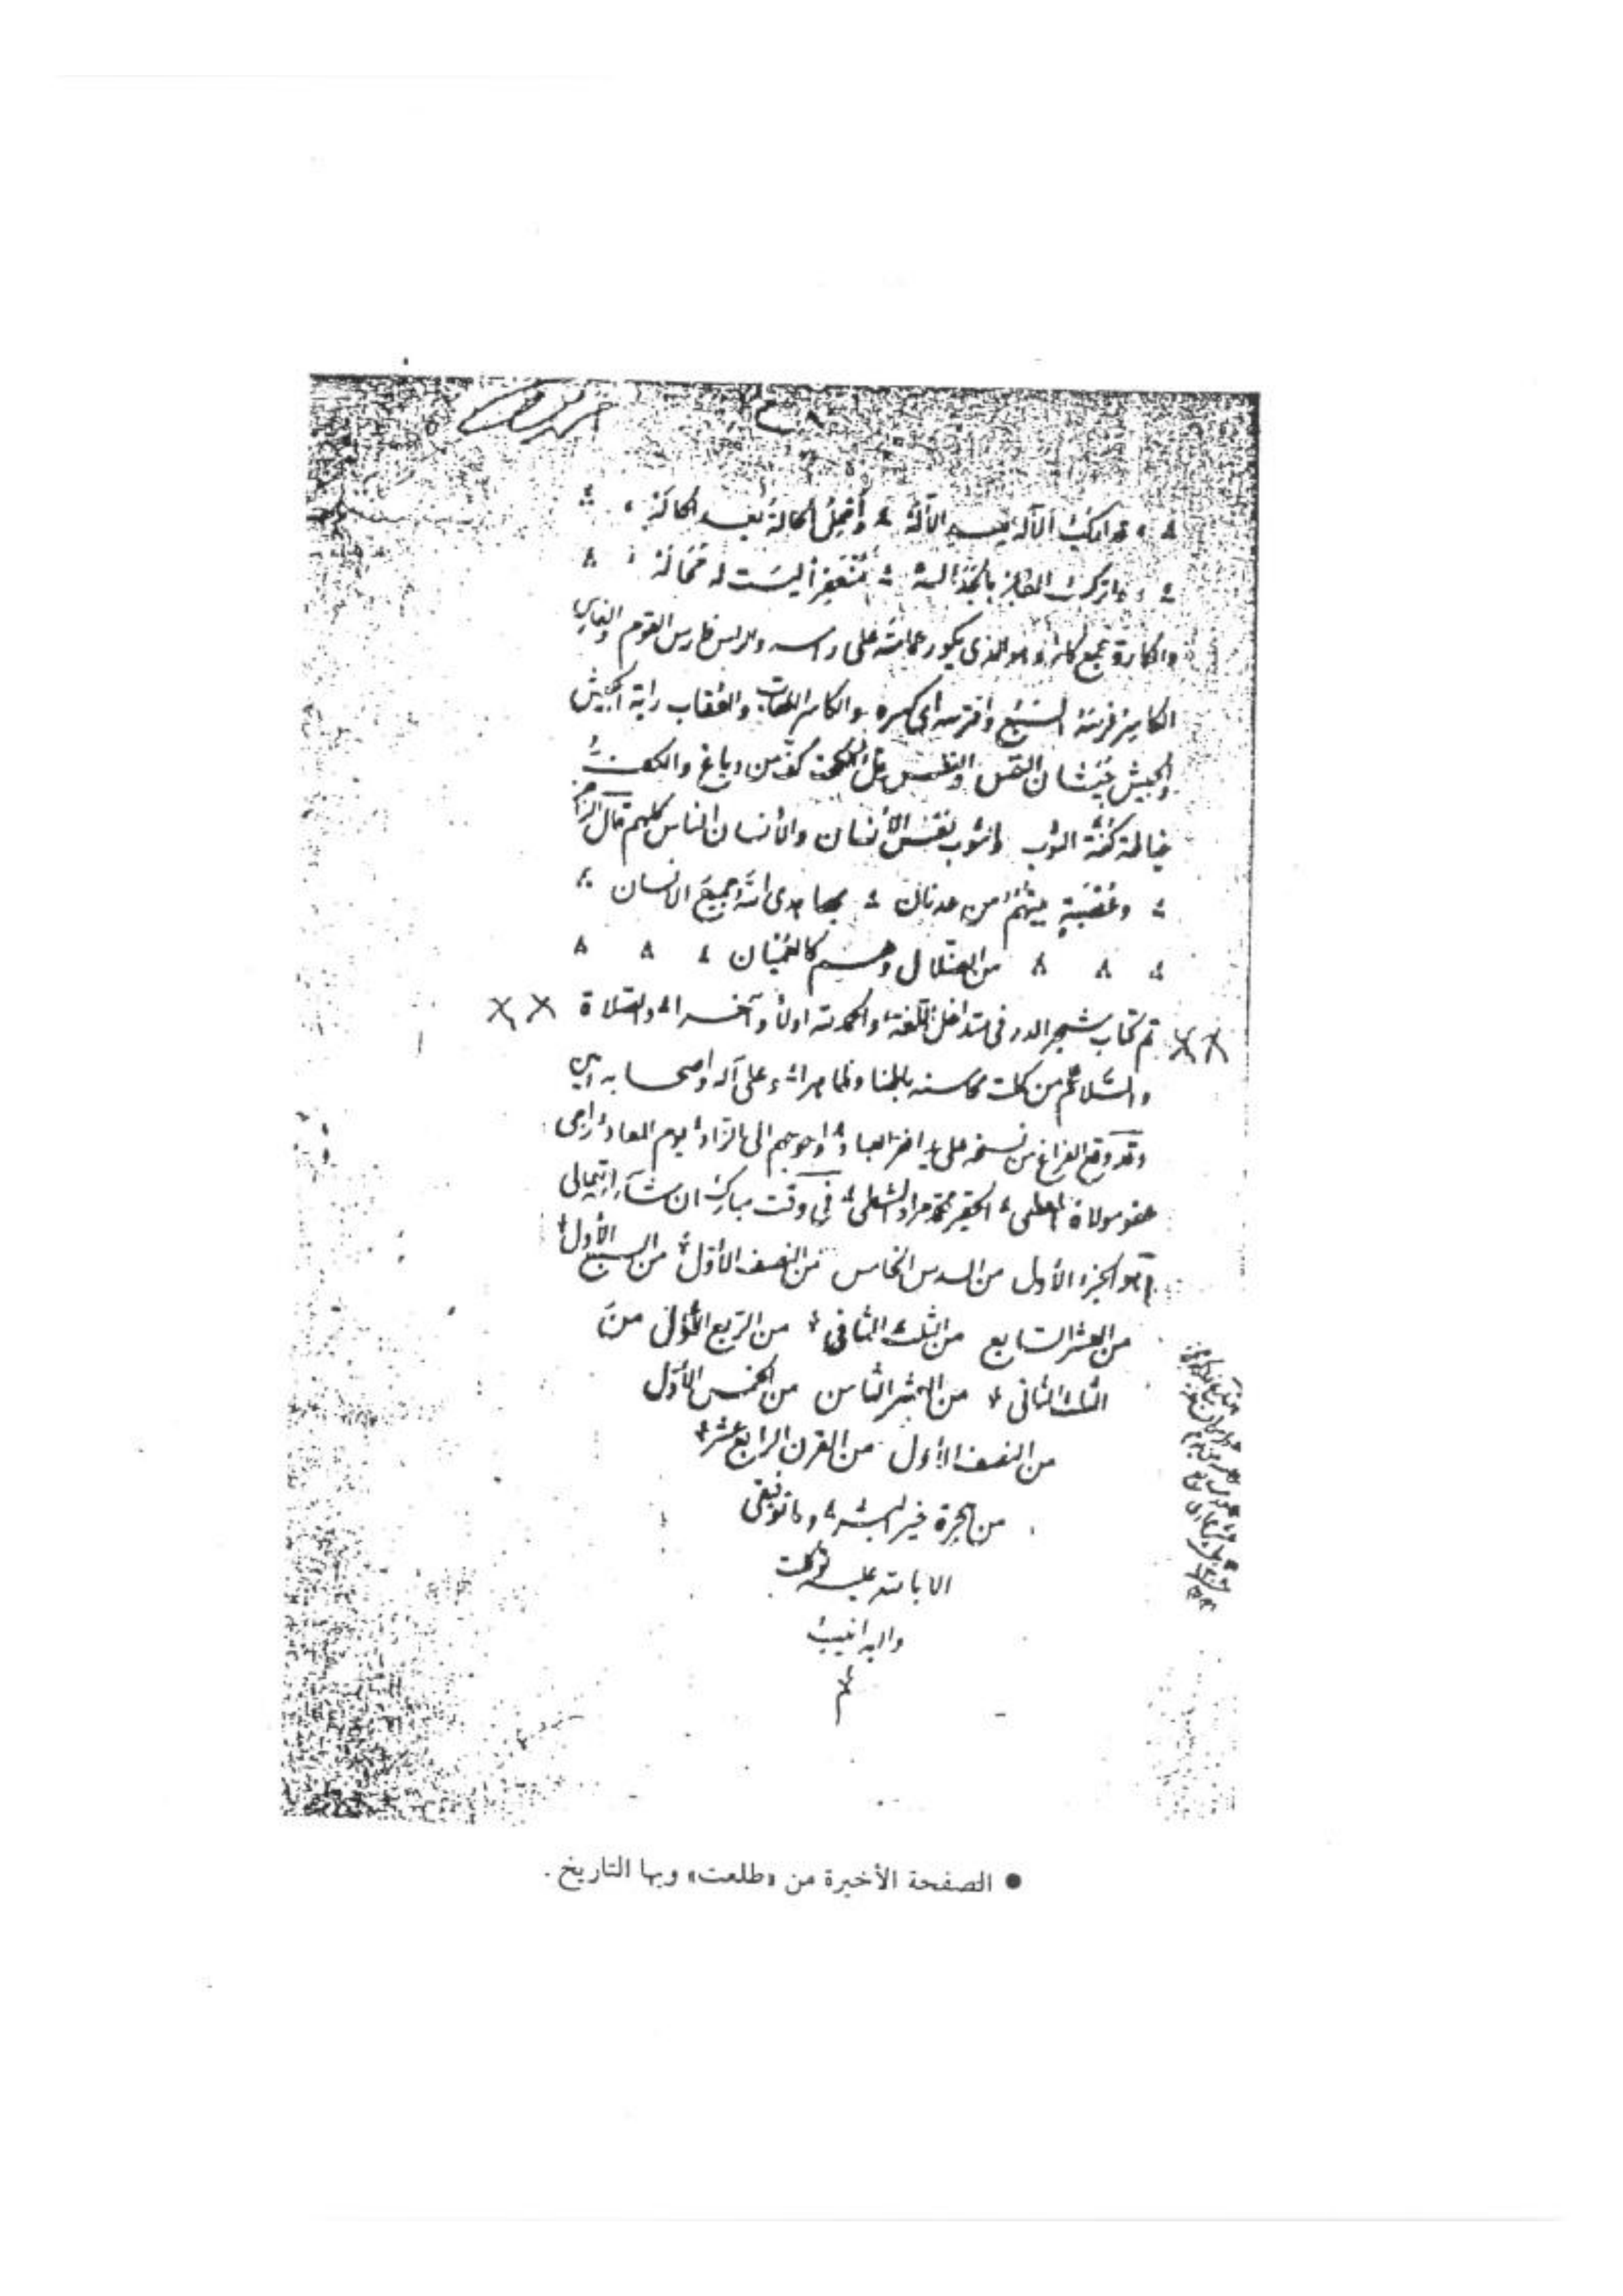 قد اركب الآلة بعد الآلة وأحمل الحالة بعد الحالة
واترك العاجز بالجدالة منعفرا ليست له محالة
والكارة جمع كائر وهو الذي يكور عمامته على راسه والراس فارس القوم والفارس
الكاسر فرسه السبع وافترسه اي كسره والكاسر العقاب والعقاب راية الجيش
والجيش جيشان النفس والنفس ملء الكف من دباغ والكف
خياطة كفة الثوب والثوب نفس الأنسان والأنسان الناس كلهم قال الراجز
وعصبة نبيهم من عدنان بها هدى الله جميع الانسان
من الضلال وهم كالعميان
تم كتاب شجر الدر في تداخل اللغة والحمد لله اولا وآخرا والصلاة
والسلام على من كملت محاسنه باطنا وظاهرا وعلى آله واصحابه
وقد وقع الفراغ من نسخه على يد افقر العباد واحوجهم الى الزاد يوم المعاد راجي
عفو مولاه العلي الحقير محمد مراد الشطي في وقت مبارك ان شاء الله تعالى
وهو الجزء الأول من السدس الخامس من النصف الأول من السبع الأول
من العشر السابع من الثلث الثاني من الربع الأول من
الثلث الثاني من العشر الثامن من الخمس الأول
من النصف الاول من القرن الرابع عشر
من هجرة خير البشر وما توفيقي
الا بالله عليه توكلت
واليه انيب
تم
● الصفحة الأخيرة من «طلعت» وبها التاريخ .